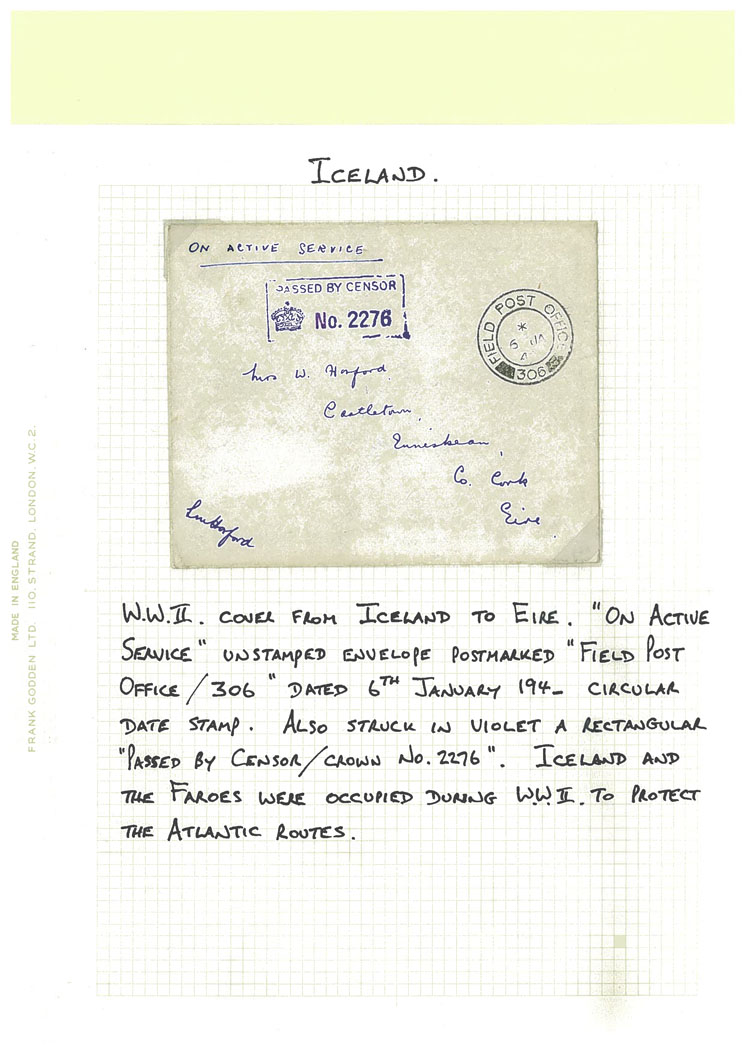 ICELAND.
ON ACTIVE SERVICE
PASSED BY CENSOR
No. 2276
FIELD POST OFFICE
*
6 JA
4
306
Mrs W. Hosford
Castletown,
Enniskean,
Co. Cork
Eire.
Hosford
W.W.II. COVER FROM ICELAND TO EIRE. "ON ACTIVE
SERVICE" UNSTAMPED ENVELOPE POSTMARKED "FIELD POST
OFFICE/306" DATED 6TH JANUARY 194_ CIRCULAR
DATE STAMP. ALSO STRUCK IN VIOLET A RECTANGULAR
"PASSED BY CENSOR/CROWN NO. 2276". ICELAND AND
THE FAROES WERE OCCUPIED DURING W.W.II. TO PROTECT
THE ATLANTIC ROUTES.
MADE IN ENGLAND
FRANK GODDEN LTD. 110, STRAND, LONDON, W.C.2.